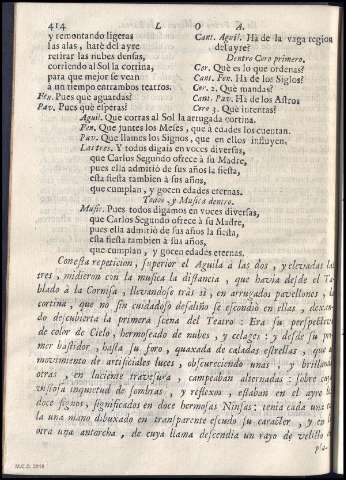 414 L O A.
y remontando ligeras
las alas, harè del ayre
retirar las nubes densas,
corriendo al Sol la cortina,
para que mejor se vean
à un tiempo entrambos teatros.
Fen. Pues què aguardas?
Pav. Pues què esperas?
Cant. Aguil. Ha de la vaga region
del ayre?
Dentro Coro primero.
Cor. Què es lo que ordenas?
Cant. Fen. Ha de los Siglos?
Cor. 2. Què mandas?
Cant. Pav. Ha de los Astros
Coro 3. Què intentas?
Aguil. Que corras al Sol la arrugada cortina.
Fen. Que juntes los Meses, que à edades los cuentan.
Pav. Que llames los Signos, que en ellos influyen.
Las tres. Y todos digais en voces diversas,
que Carlos Segundo ofrece à su Madre,
pues ella admitiò de sus años la fiesta,
esta fiesta tambien à sus años,
que cumplan, y gocen edades eternas.
Todos, y Musica dentro.
Music. Pues todos digamos en voces diversas,
que Carlos Segundo ofrece à su Madre,
pues ella admitiò de sus años la fiesta,
esta fiesta tambien à sus años,
que cumplan, y gocen edades eternas.
Con esta repeticion, superior el Aguila à las dos, y elevadas las
tres, midieron con la musica la distancia, que havia desde el Ta-
blado à la Cornisa, llevandose tràs sì, en arrugados pavellones, la
cortina, que no sin cuidadoso desaliño se escondiò en ellas, dexan-
do descubierta la primera scena del Teatro: Era su perspectiva
de color de Cielo, hermoseado de nubes, y celages: y desde su pri-
mer bastidor, hasta su foro, quaxada de caladas estrellas, que al
movimiento de artificiales luces, obscureciendo unas, y brillando
otras, en luciente travesura, campeaban alternadas: sobre cuya
vistosa inquietud de sombras, y reflexos, estaban en el ayre los
doce signos, significados en doce hermosas Ninfas: tenia cada una en
la una mano dibuxado en transparente escudo su caracter, y en la
otra una antorcha, de cuya llama descendia un rayo de velillo de
pla-